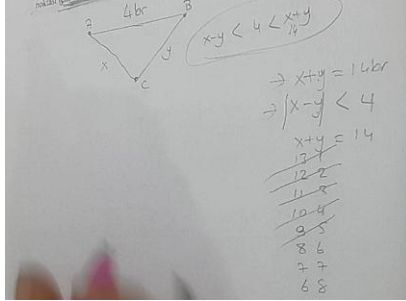 4br
A B
x y
C
x-y < 4 < x+y
14
→ x+y = 14br
→ |x-y| < 4
x+y = 14
13 1
12 2
11 3
10 4
9 5
8 6
7 7
6 8